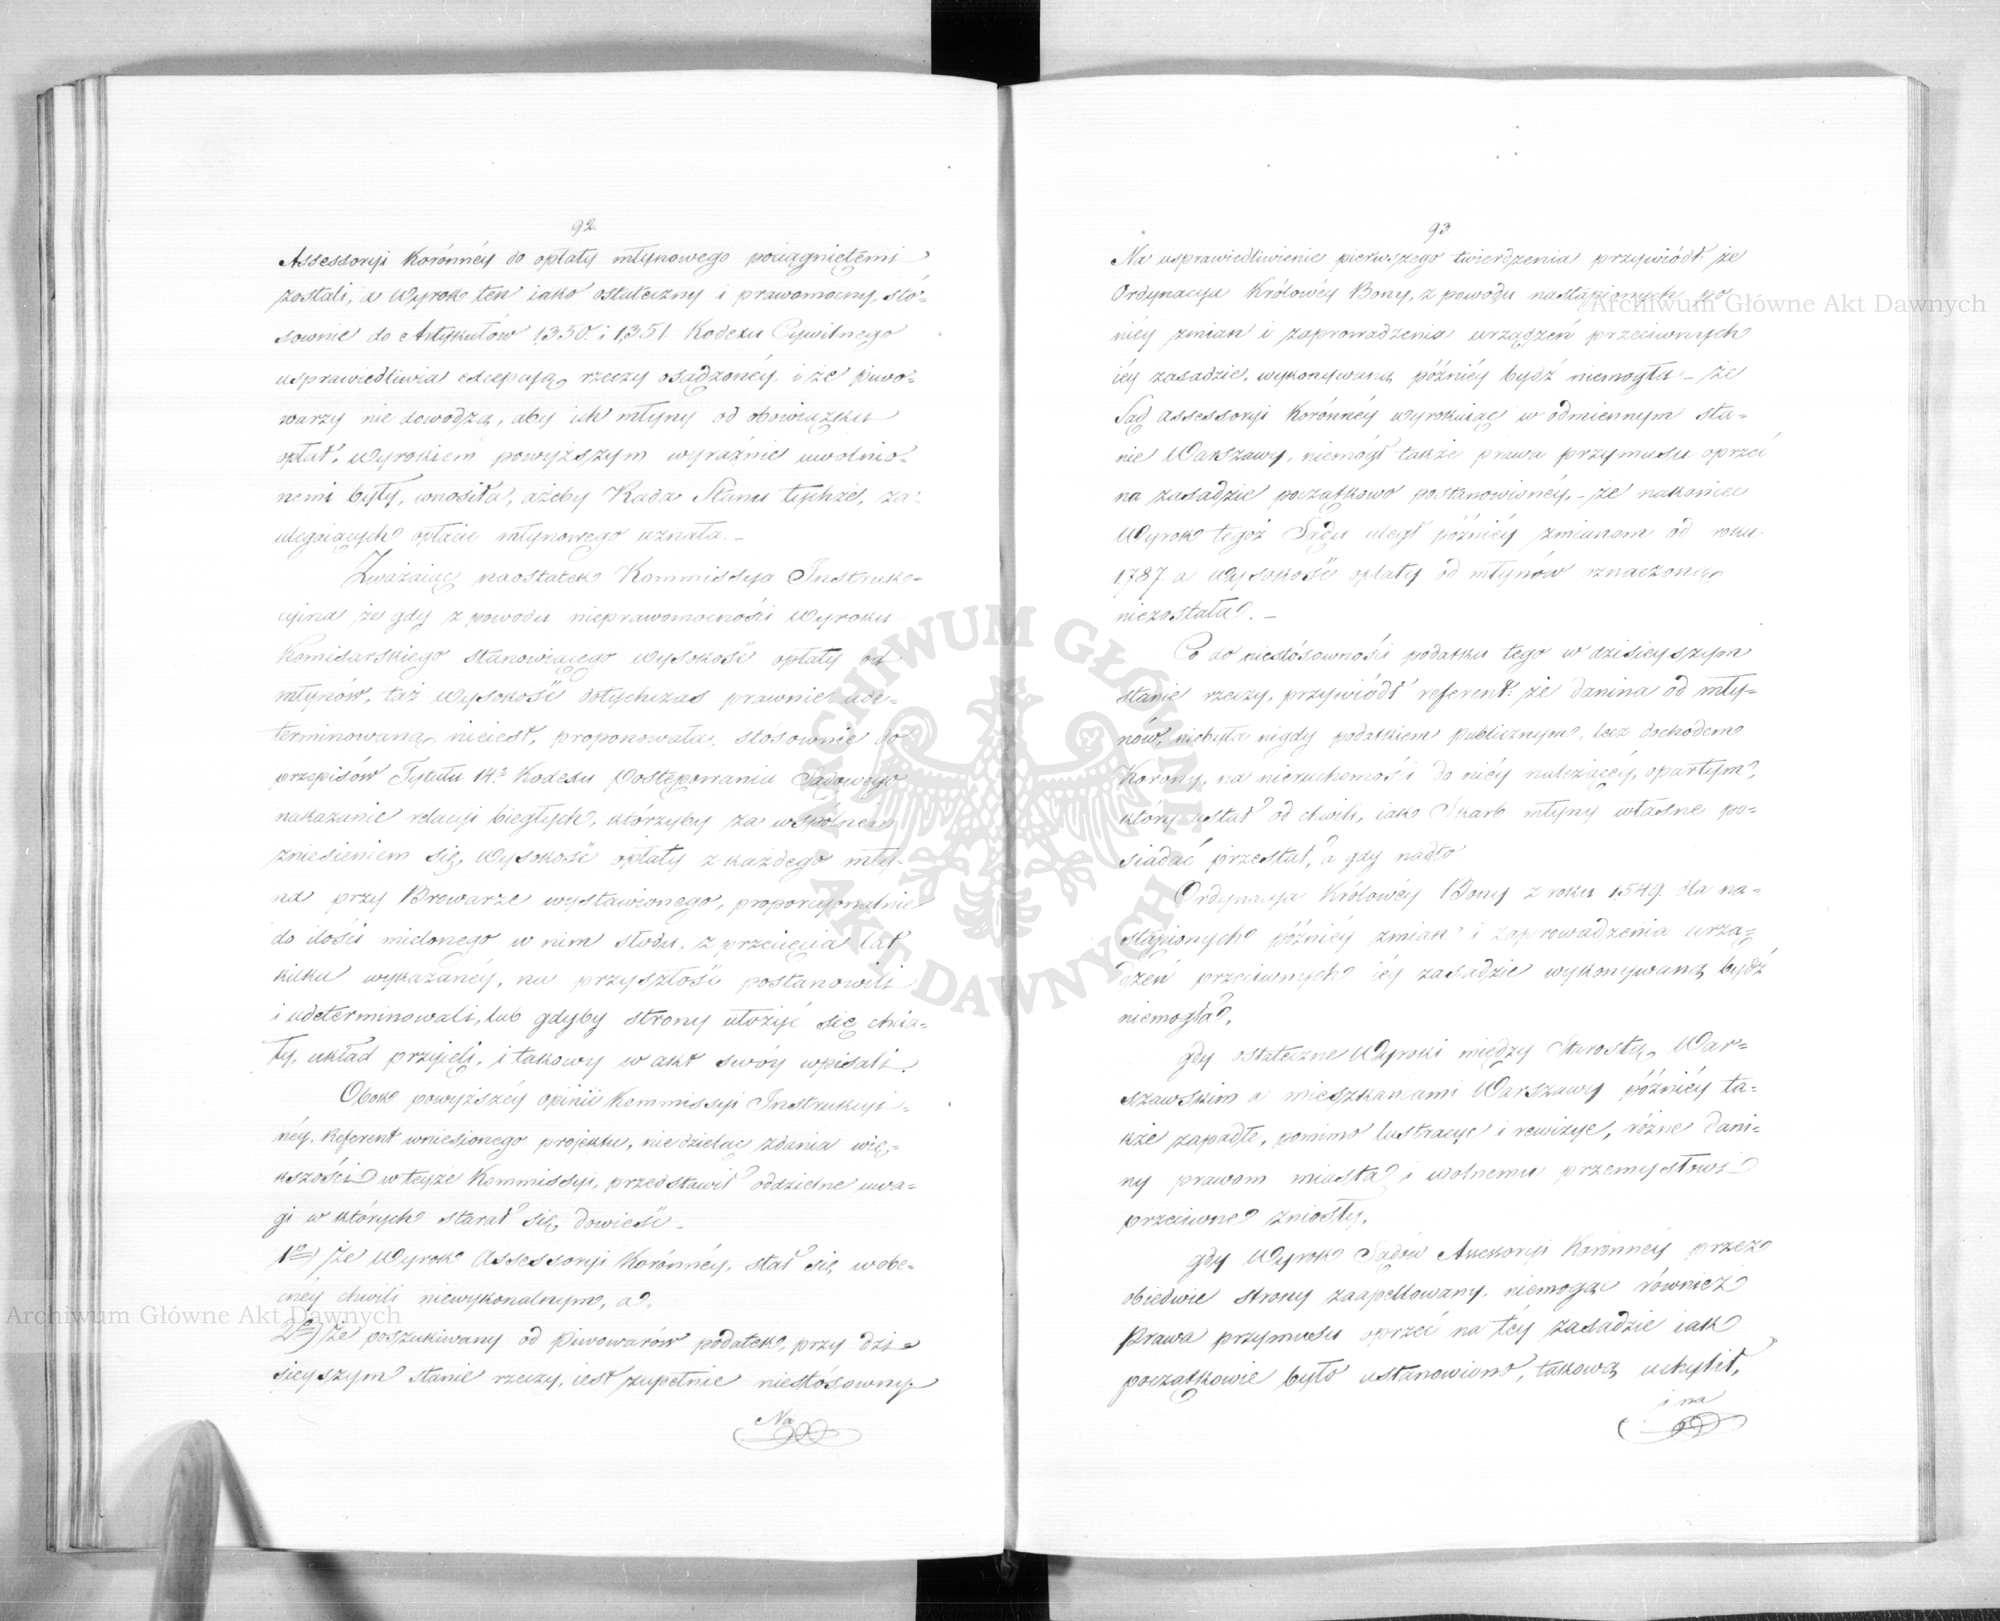 92.
Assessoryi Korónnéy do opłaty młynowego pociągniętemi
zostali, a Wyrok ten iako ostateczny i prawomocny, stó-
sownie do Artykułów 1,350. i 1,351. Kodexu Cywilnego
usprawiedliwia excepcyą rzeczy osądzonéy, i że piwo-
warzy nie dowodzą, aby ich młyny od obowiązku
opłat, Wyrokiem powyższym wyraźnie uwolnio-
nemi były, wnosiła, ażeby Rada Stanu tychże, za
ulegaiących opłacie młynowego uznała. _
Zważaiąc naostatek Kommissya Instruk-
cyina że gdy z powodu nieprawomocności Wyroku
Komisarskiego stanowiącego wysokość opłaty od
młynów, taż wysokość dotychczas prawnie ude-
terminowaną nieiest, proponowała, stósownie do
przepisów Tytułu 14º Kodexu Postępowania Sądowego
nakazanie relacyi biegłych, którzyby za wspólnem
zniesieniem się, wysokość opłaty z każdego mły-
na przy Browarze wystawionego, proporcyonalnie
do ilości mielonego w nim słodu, z przecięcia lat
kilku wykazanéy, na przyszłość postanowili
i udeterminowali, lub gdyby strony ułożyć się chcia-
ły, układ przyjęli, i takowy w akt swóy wpisali.
Obok powyższéy opinii Kommissyi Instrukcyi-
néy, Referent wniesionego projektu, niedzieląc zdania wię-
kszości w teyże Kommissyi, przedstawił oddzielne uwa-
gi w których starał się dowieść _
1º) Że Wyrok Assessoryi Korónnéy, stał się w obe-
cnéy chwili niewykonalnym, a,
2º) Że poszukiwany od Piwowarów podatek, przy dzi-
sieyszym stanie rzeczy, iest zupełnie niestósowny
Na
93
Na usprawiedliwienie pierwszego twierdzenia przywiódł: że
Ordynacya Królowéy Bony, z powodu nastąpionych po
niéy zmian i zaprowadzenia urządzeń przeciwnych
iéy zasadzie, wykonywaną późniéy bydź niemogła _ że
Sąd Assessoryi Korónnéy wyrokuiąc w odmiennym sta-
nie Warszawy, niemógł także prawa przymusu oprzeć
na zasadzie początkowo postanowionéy, _ że nakoniec
Wyrok tegoż Sądu uległ późniéy zmianom od roku
1787. a wysokość opłaty od młynów oznaczoną
niezostała. _
Co do niestósowności podatku tego w dzisieyszym
stanie rzeczy, przywiódł referent: że danina od mły-
nów, niebyła nigdy podatkiem publicznym, lecz dochodem
Korony, na nieruchomości do niéy należącéy, opartym,
który ustał od chwili, iak Skarb młyny własne po-
siadać przestał, a gdy nadto
Ordynacya Królowéy Bony z roku 1,549. dla na-
stąpionych późniéy zmian i zaprowadzenia urzą-
dzeń przeciwnych iéy zasadzie wykonywaną bydź
niemogła,
gdy ostateczne Wyroki między Starostą War-
szawskim a mieszkańcami Warszawy późniéy ta-
kże zapadłe, pomimo lustracye i rewizye, różne dani-
ny prawom miasta i wolnemu przemysłowi
przeciwne zniosły,
gdy Wyrok Sądów Assessoryi Korónnéy przez
obiedwie strony zaapellowany, niemogąc również
Prawa przymusu oprzeć na téy zasadzie iak
początkowie było ustanowione, takową uchylił,
i na
Archiwum Główne Akt Dawnych
Archiwum Główne Akt Dawnych
ARCHIWUM GŁÓWNE
AKT DAWNYCH